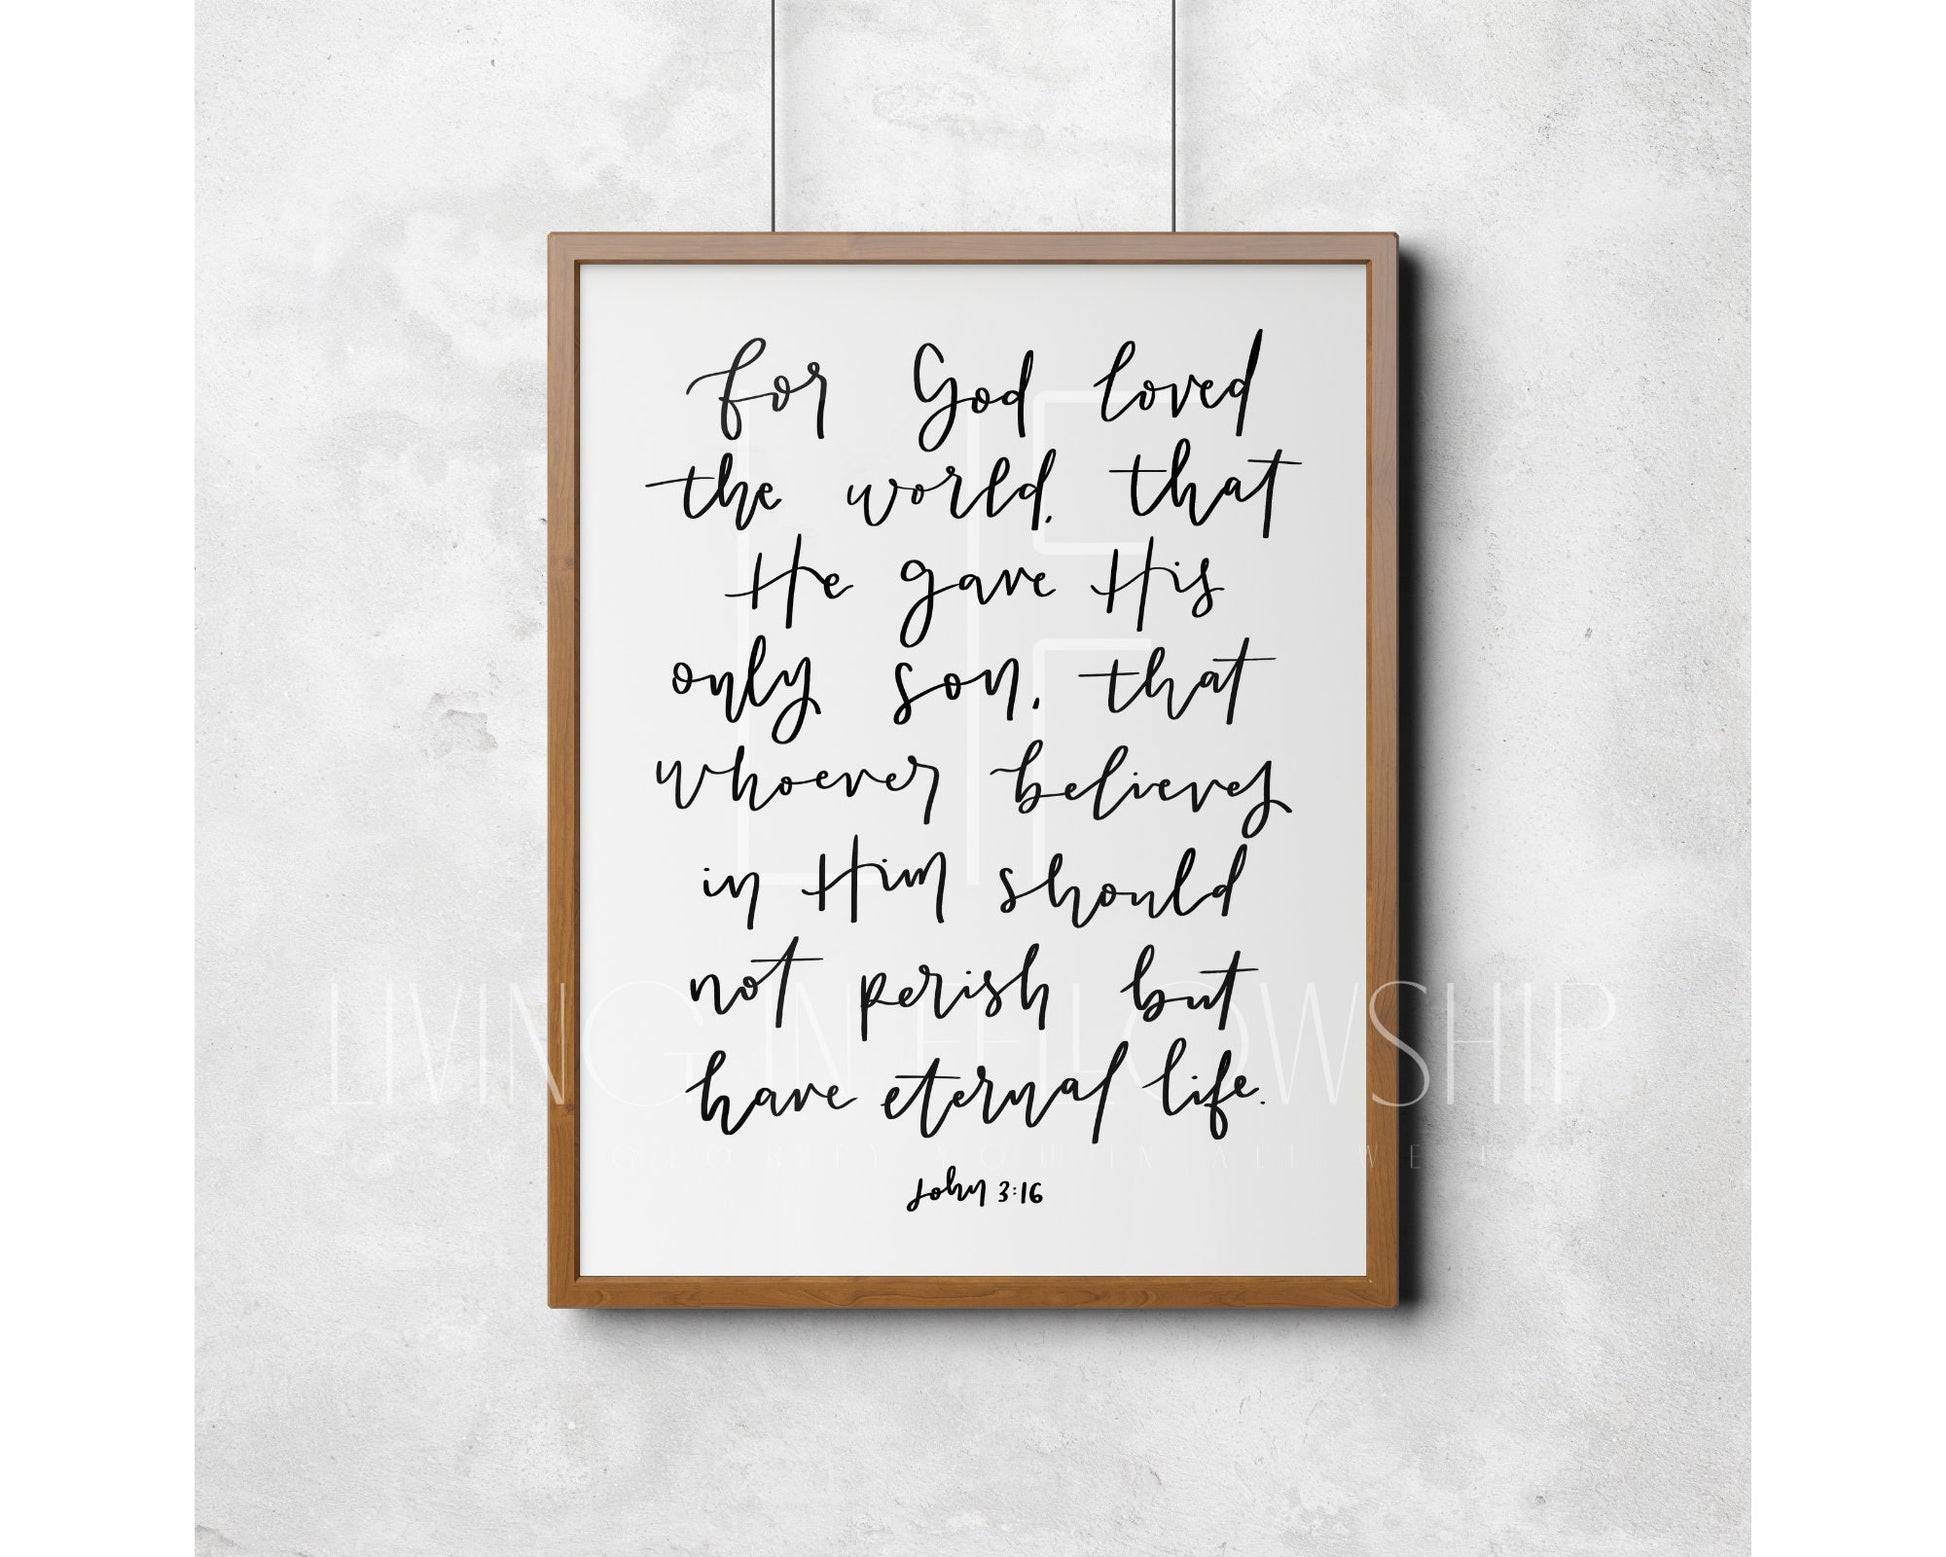 for God loved
the world, that
He gave His
only son, that
whoever believes
in Him should
not perish but
have eternal life.
John 3:16
LIVING IN FELLOWSHIP